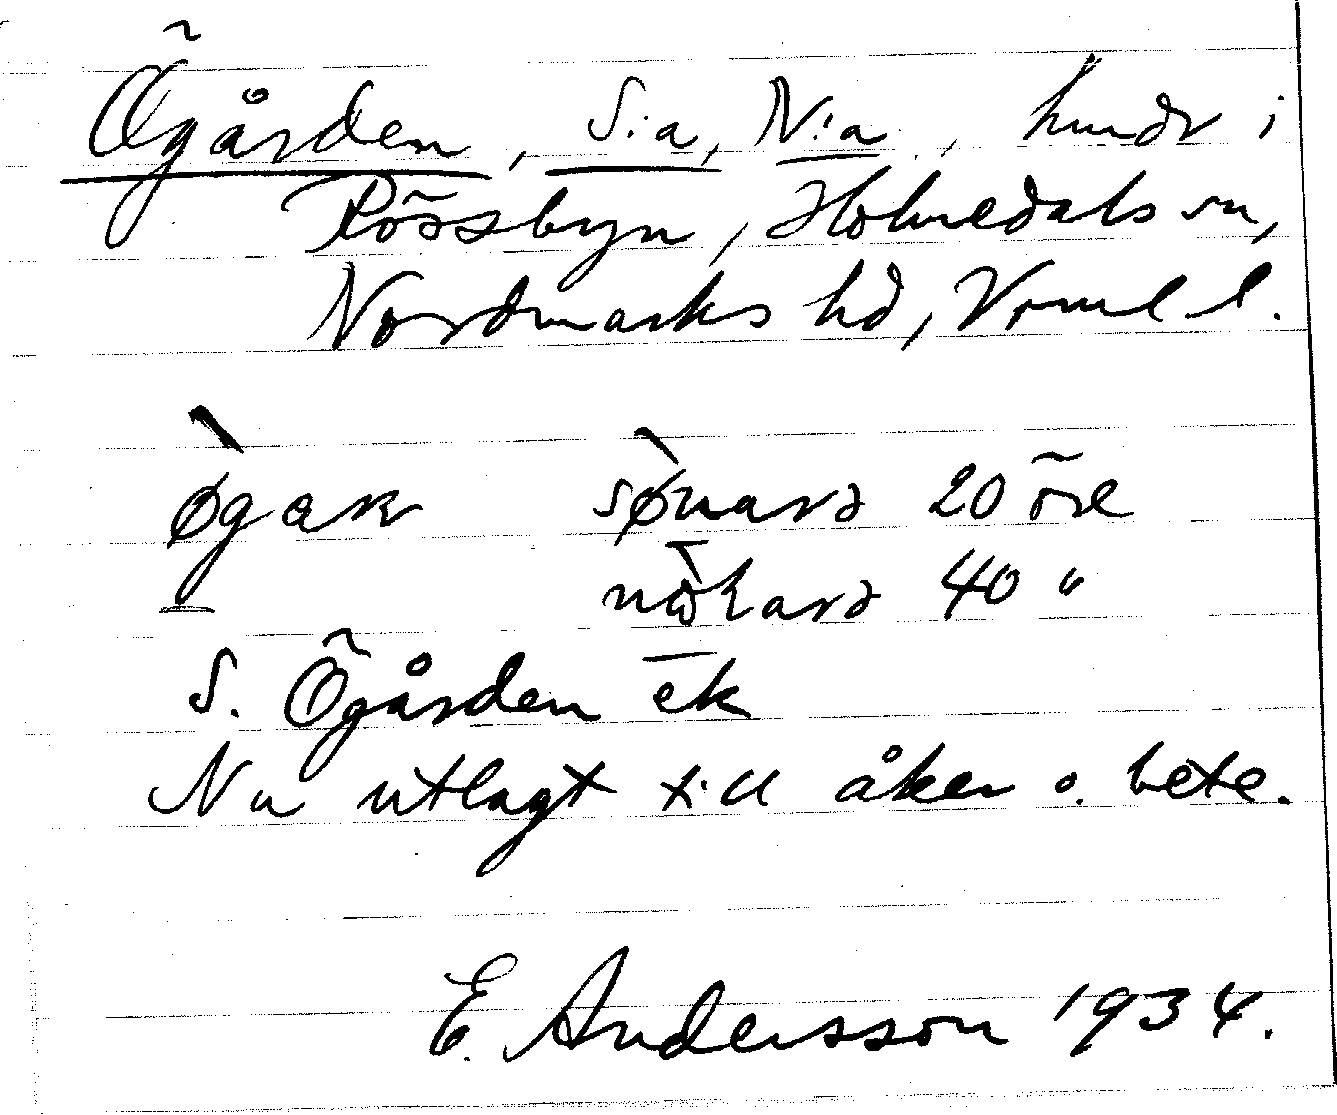 Ögården, S:a, N:a, hmdr i
Rössbyn, Holmedals sn,
Nordmarks hd, Vrml l.
øgaɴ sønard 20 öre
nøḷard 40 "
S. Ögården ek
Nu utlagt till åker o. bete.
E. Andersson 1934.